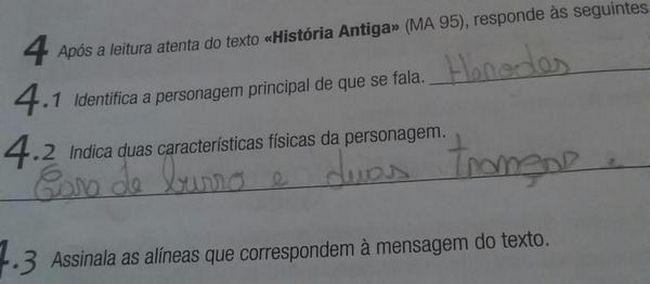 4 Após a leitura atenta do texto «História Antiga» (MA 95), responde às seguintes
4.1 Identifica a personagem principal de que se fala. Herodes
4.2 Indica duas características físicas da personagem.
Cara de burro e duas tranças e
4.3 Assinala as alíneas que correspondem à mensagem do texto.